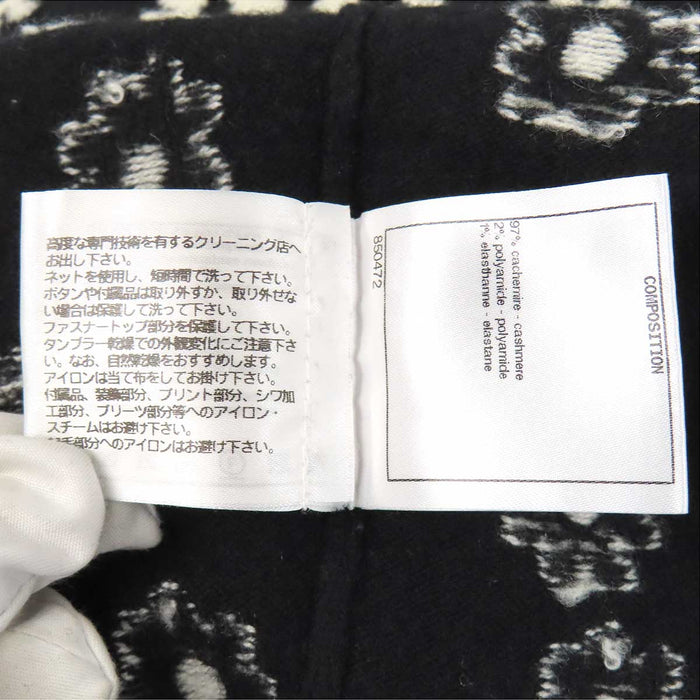 高度な専門技術を有するクリーニング店へ
お出し下さい。
ネットを使用し、短時間で洗って下さい。
ボタンや付属品は取り外すか、取り外せな
い場合は保護して洗って下さい。
ファスナートップ部分を保護して下さい。
タンブラー乾燥での外観変化にご注意下さ
い。なお、自然乾燥をおすすめします。
アイロンは当て布をしてお掛け下さい。
付属品、装飾部分、プリント部分、シワ加
工部分、プリーツ部分等へのアイロン・
スチームはお避け下さい。
部分へのアイロンはお避け下さい。
850472
COMPOSITION
97% cachemire - cashmere
2% polyamide - polyamide
1% elasthanne - elastane